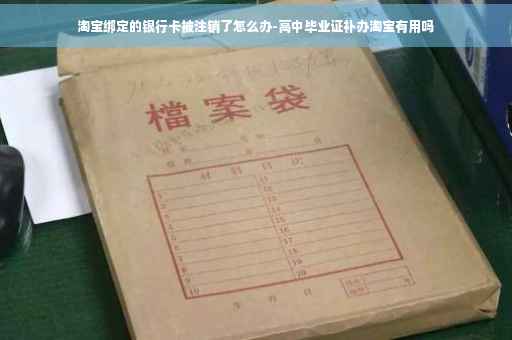 淘宝绑定的银行卡被注销了怎么办-高中毕业证补办淘宝有用吗
檔案袋
材料目次
1 11
2 12
3 13
4 14
5 15
6 16
7 17
8 18
9 19
10 20
年 月 日